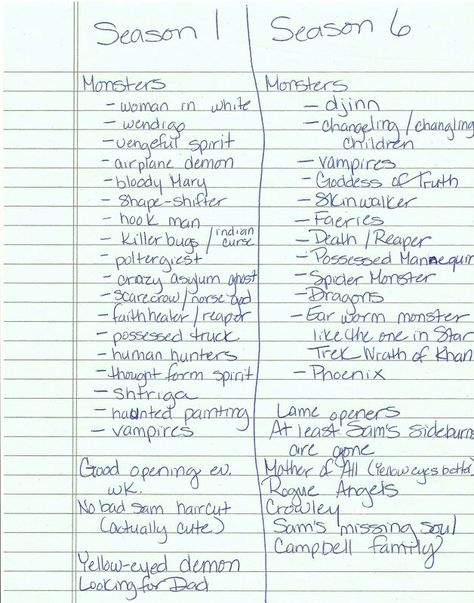 Season 1
Monsters
- woman in white
- wendigo
- vengeful spirit
- airplane demon
- bloody Mary
- Shape-shifter
- hook man
- killer bugs / indian curse
- poltergiest
- crazy asylum ghost
- scarecrow/norse god
- faith healer/reaper
- possessed truck
- human hunters
- thought form spirit
- shtriga
- haunted painting
- vampires
Good opening ev.
wk.
No bad sam haircut
(actually cute)
Yellow-eyed demon
Looking for Dad
Season 6
Monsters
- djinn
- changeling/changling
children
- vampires
- Goddess of Truth
- Skinwalker
- Faeries
- Death/Reaper
- Possessed Mannequin
- Spider Monster
- Dragons
- Ear worm monster
like the one in Star
Trek Wrath of Khan
- Phoenix
Lame openers
At least Sam's sideburns
are gone
Mother of All (Yellow eyes betta)
Rogue Angels
Crowley
Sam's misssing soul
Campbell family